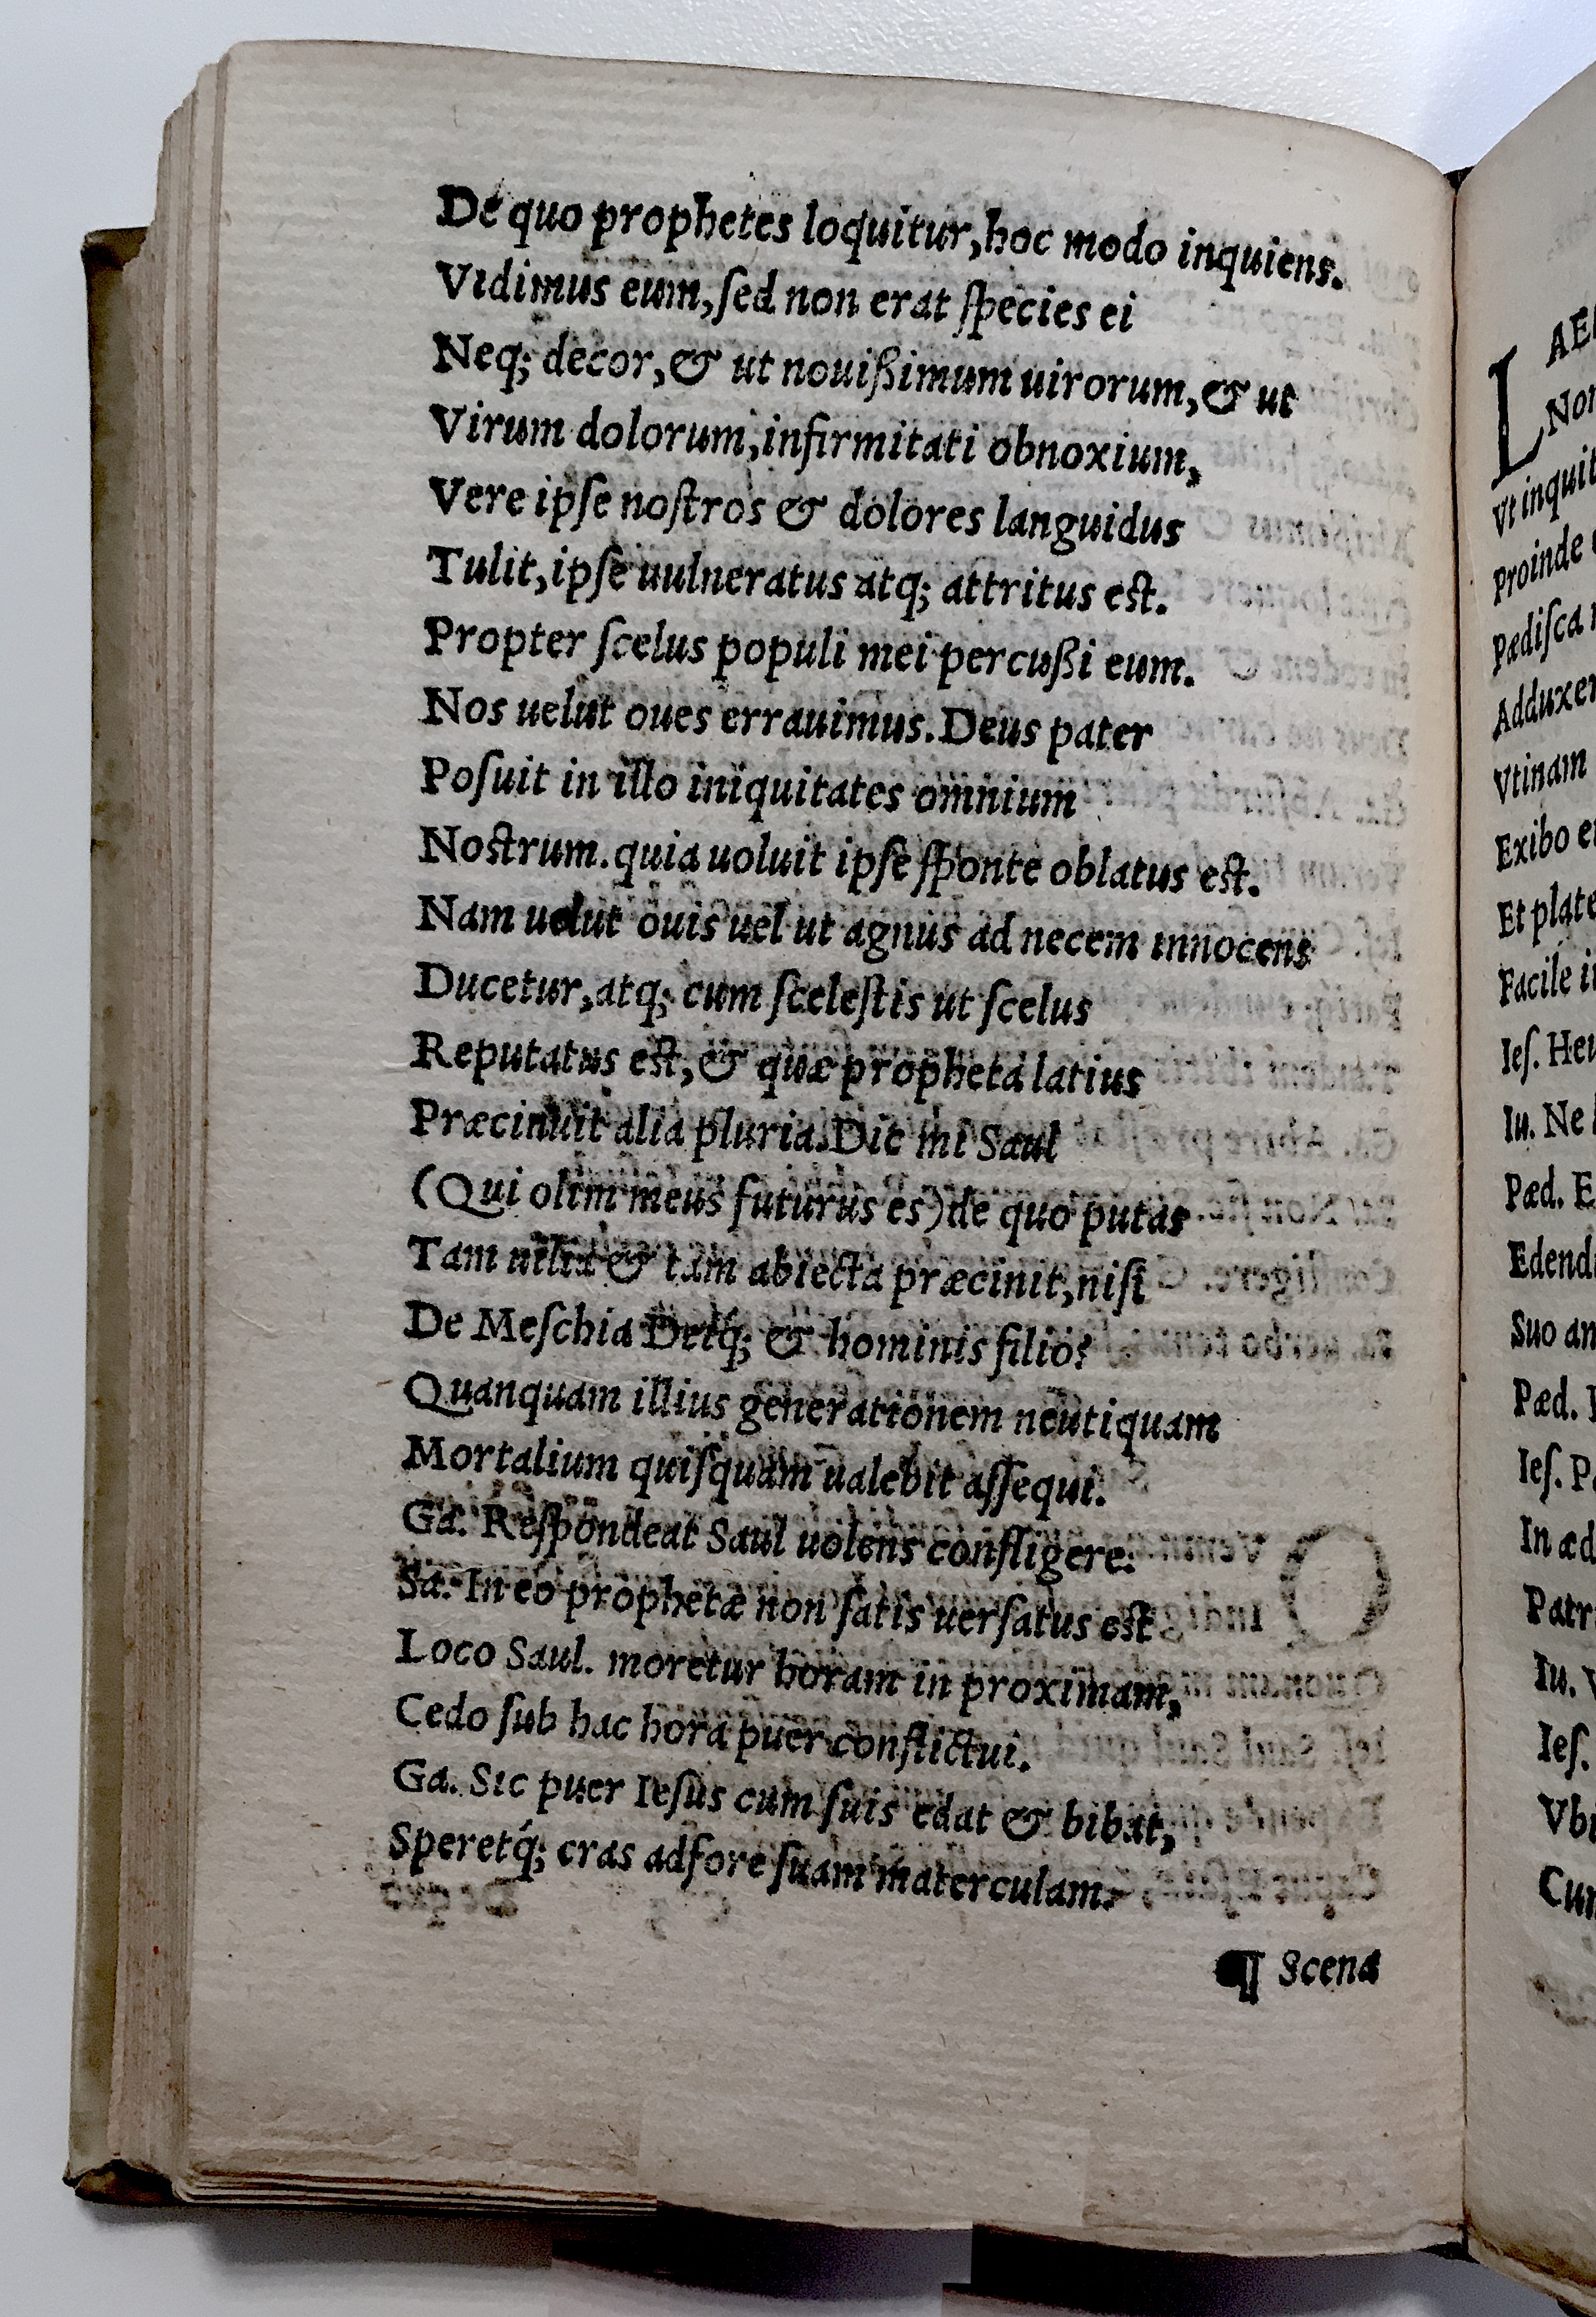 De quo prophetes loquitur, hoc modo inquiens.
Vidimus eum, ſed non erat ſpecies ei
Neq; decor, & ut nouißimum uirorum, & ut
Virum dolorum, infirmitati obnoxium,
Vere ipſe noſtros & dolores languidus
Tulit, ipſe uulneratus atq; attritus eſt.
Propter ſcelus populi mei percußi eum.
Nos uelut oues errauimus. Deus pater
Poſuit in illo iniquitates omnium
Noſtrum. quia uoluit ipſe ſponte oblatus eſt.
Nam uelut ouis uel ut agnus ad necem innocens
Ducetur, atq; cum ſceleſtis ut ſcelus
Reputatus eſt, & quæ propheta latius
Præcinuit alia pluria. Dic mi Saul
(Qui olim meus futurus es) de quo putas
Tam uilia & tam abiecta præcinit, niſi
De Meſchia Deiq́; & hominis filio?
Quanquam illius generationem neutiquam
Mortalium quiſquam ualebit aſſequi.
Ga. Reſpondeat Saul uolens confligere.
Sa. In eo prophetæ non ſatis uerſatus eſt
Loco Saul. moretur horam in proximam,
Cedo ſub hac hora puer conflictui.
Ga. Sic puer Ieſus cum ſuis edat & bibat,
Speretq́; cras adfore ſuam materculam.
¶ Scena
L
Vt inquit
Proinde
Pædiſca
Vtinam
Exibo
Et
Facile
Ieſ.
Iu. Ne
Pæd.
Suo
Pæd.
Ieſ.
In
Iu.
Ieſ.